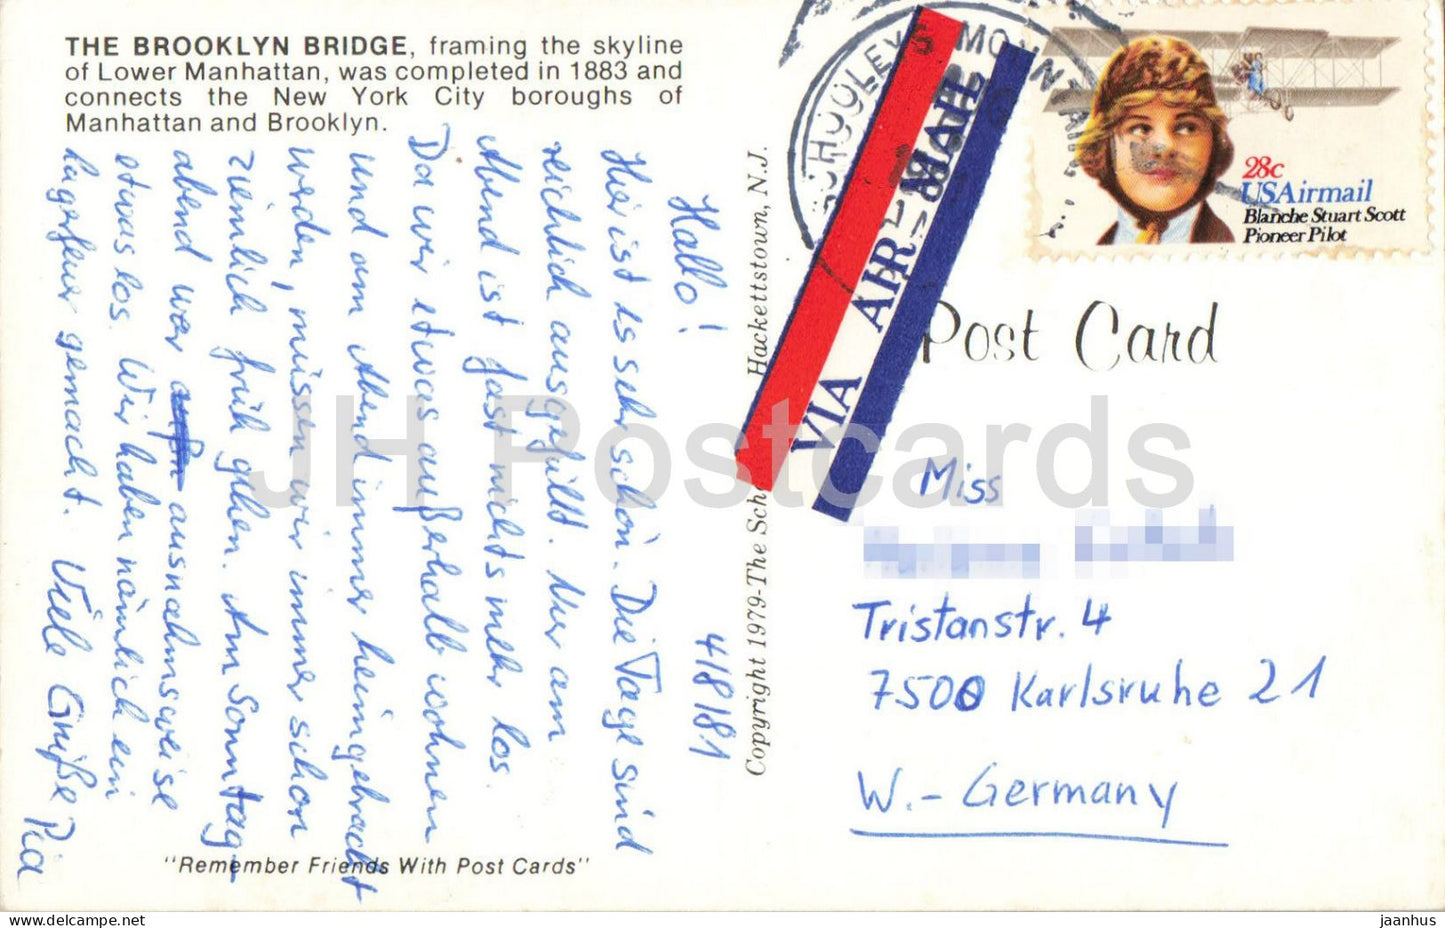 THE BROOKLYN BRIDGE, framing the skyline
of Lower Manhattan, was completed in 1883 and
connects the New York City boroughs of
Manhattan and Brooklyn.
Hallo! 4/8/81
Hier ist es sehr schön. Die Tage sind
reichlich ausgefüllt. Nur am
Abend ist fast nichts mehr los.
Da wir etwas außerhalb wohnen
und am Abend immer heimgebracht
werden, müssen wir immer schon
ziemlich früh gehen. Am Sonntag-
abend war ausnahmsweise
etwas los. Wir haben nämlich ein
Lagerfeuer gemacht. Viele Grüße Pia
"Remember Friends With Post Cards"
Copyright 1979-The Sch Hackettstown, N.J.
SCHOOLEY'S MOUNTAIN
VIA AIR MAIL
28c
USAirmail
Blanche Stuart Scott
Pioneer Pilot
Post Card
Miss
Tristanstr. 4
7500 Karlsruhe 21
W.-Germany
JH Postcards
delcampe.net
jaanhus